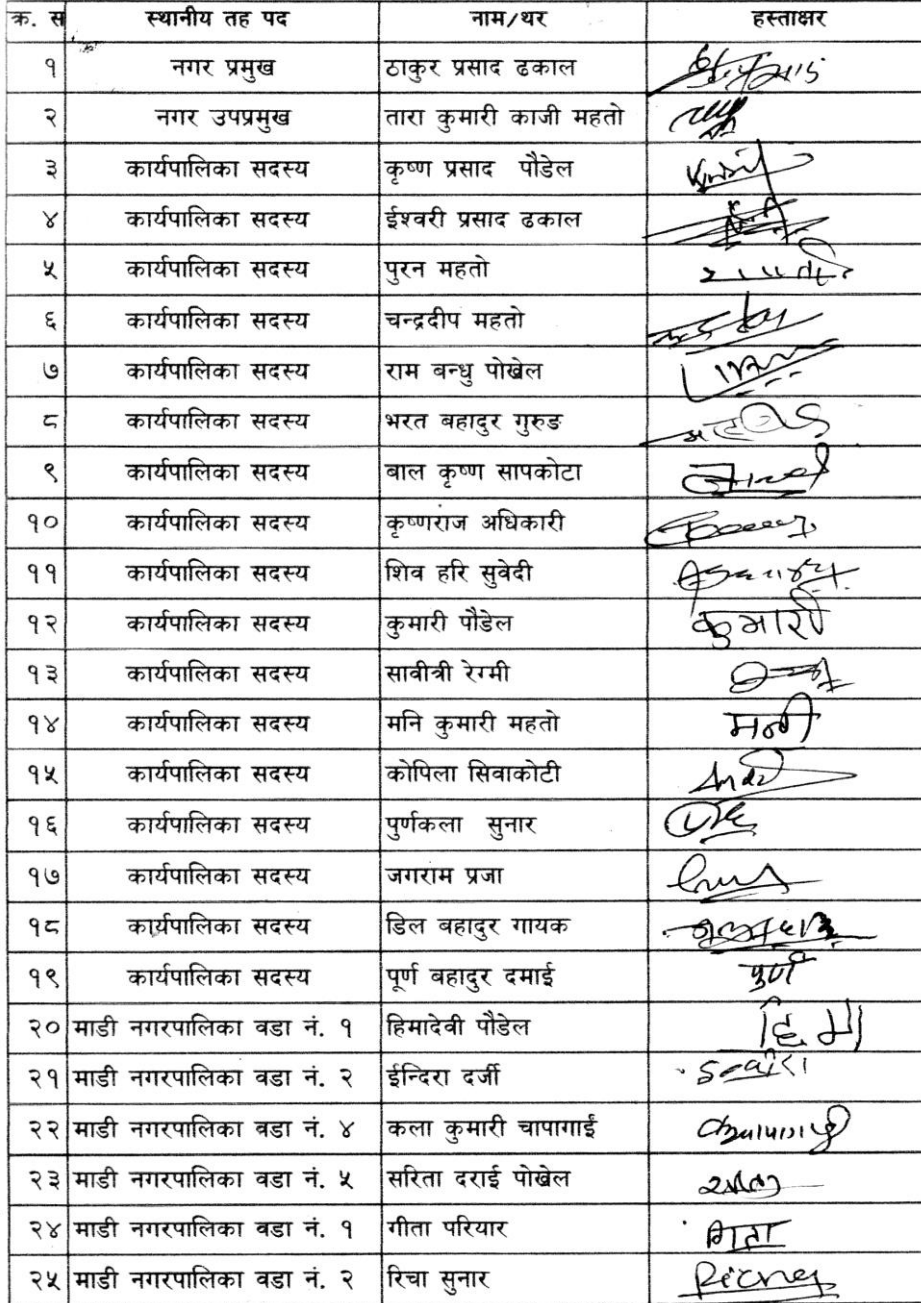 क्र. स स्थानीय तह पद नाम/थर हस्ताक्षर
१ नगर प्रमुख ठाकुर प्रसाद ढकाल
२ नगर उपप्रमुख तारा कुमारी काजी महतो
३ कार्यपालिका सदस्य कृष्ण प्रसाद पौडेल
४ कार्यपालिका सदस्य ईश्वरी प्रसाद ढकाल
५ कार्यपालिका सदस्य पुरन महतो
६ कार्यपालिका सदस्य चन्द्रदीप महतो
७ कार्यपालिका सदस्य राम बन्धु पोख्रेल
८ कार्यपालिका सदस्य भरत बहादुर गुरुङ
९ कार्यपालिका सदस्य बाल कृष्ण सापकोटा
१० कार्यपालिका सदस्य कृष्णराज अधिकारी
११ कार्यपालिका सदस्य शिव हरि सुवेदी
१२ कार्यपालिका सदस्य कुमारी पौडेल कुमारी
१३ कार्यपालिका सदस्य सावीत्री रेग्मी
१४ कार्यपालिका सदस्य मनि कुमारी महतो मनी
१५ कार्यपालिका सदस्य कोपिला सिवाकोटी
१६ कार्यपालिका सदस्य पुर्णकला सुनार
१७ कार्यपालिका सदस्य जगराम प्रजा
१८ कार्यपालिका सदस्य डिल बहादुर गायक
१९ कार्यपालिका सदस्य पूर्ण बहादुर दमाई पुर्ण
२० माडी नगरपालिका वडा नं. १ हिमादेवी पौडेल हिमा
२१ माडी नगरपालिका वडा नं. २ ईन्दिरा दर्जी
२२ माडी नगरपालिका वडा नं. ४ कला कुमारी चापागाईं
२३ माडी नगरपालिका वडा नं. ५ सरिता दराई पोख्रेल
२४ माडी नगरपालिका वडा नं. १ गीता परियार गिता
२५ माडी नगरपालिका वडा नं. २ रिचा सुनार